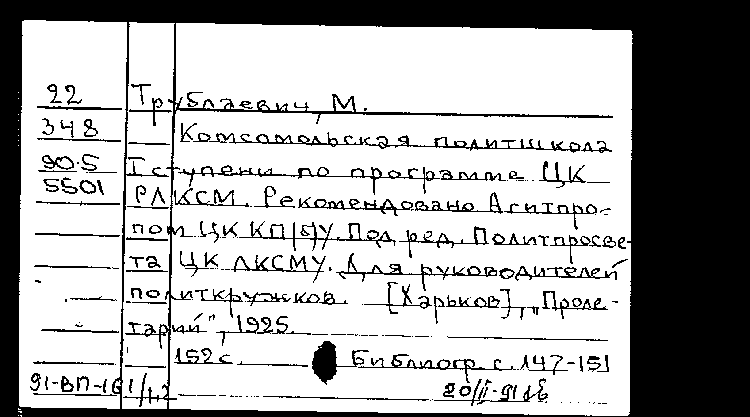 22 Трублаевич, М.
348 Комсомольская политшкола
90.5 I ступени по программе ЦК
5501 РЛКСМ. Рекомендовано Агитпро-
пом ЦК КП/б/У. Под ред. Политпросве-
та ЦК ЛКСМУ. Для руководителей
политкружков. [Харьков], „Проле-
тарий", 1925.
152 с. Библиогр. с. 147-151
91-ВП-161/1,2 20/II-91